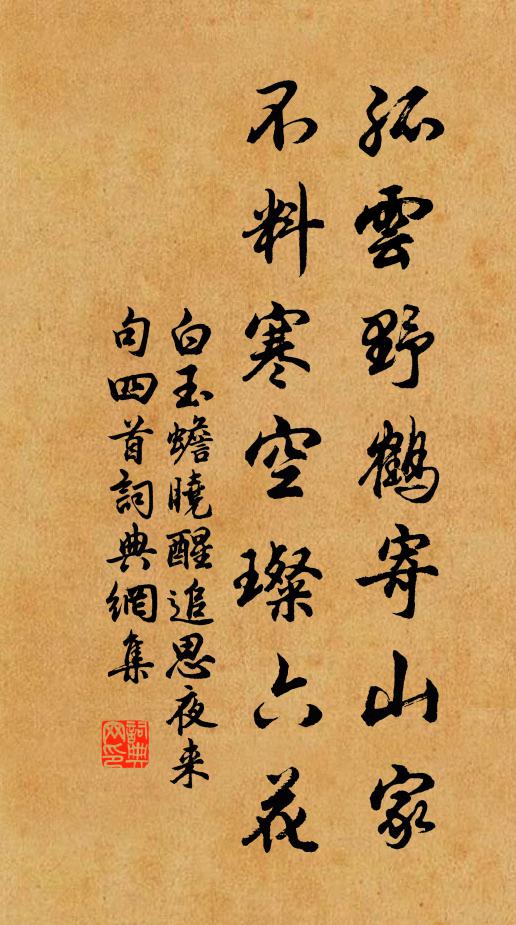 孤雲野鶴寄山家
不料寒空璨六花
白玉蟾曉醒追思夜来
句四首詞典網集
詞典网印